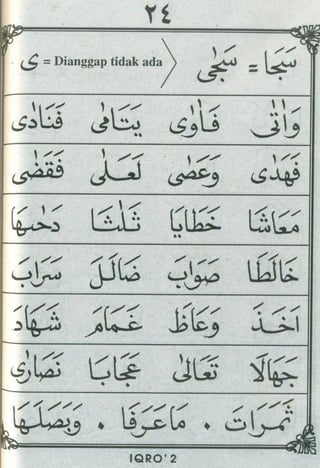 ٢٤
سَجَا = سَجٰى ى = Dianggap tidak ada
وَاٰتٰى فَاٰوٰى يَتَامٰى فَنَادٰى
فَهَدٰى وَعَصٰى لَعَلٰى فَقَضٰى
مَعَاشَا خَطَايَا ثَلٰثَا دَحٰىهَا
خَالَطَا صَوَابَ ضَالَلَ سَرَابَ
اَخَذَ وَعَاظَ غَمَامَ شَهَادَ
جَهَالَا تَعَالٰى عَجَابَا نَصَارٰى
ثَمَرَاتَ . مَاعَرَفَا . وَبَصَلَهَا
IQRO' 2